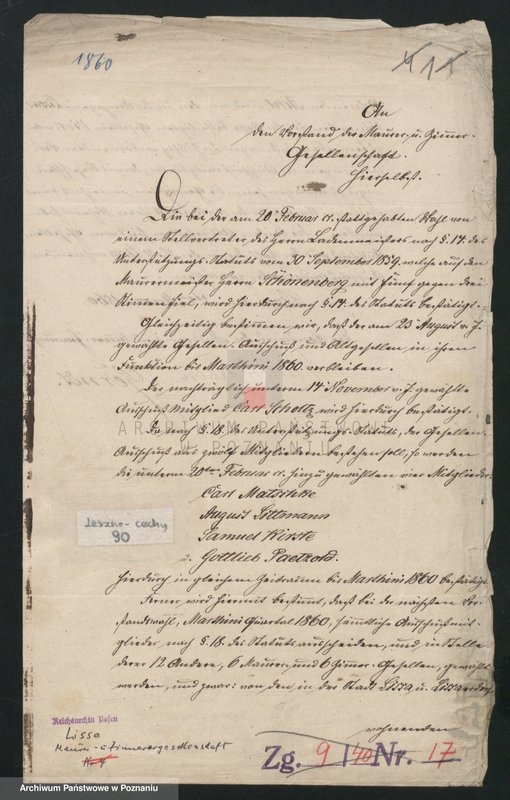 1860
An
den Vorstand der Maurer- u. Zimmer-
Gesellenschaft.
Hierselbst.
Die bei der am 20 Februar cr. stattgehabten Wahl von
einem Stellvertreter des Herrn Ladenmeisters nach §. 14. des
Unterstützungs-Statuts vom 30 September 1859. welche auf den
Maurermeister Herrn Schönenberg mit fünf gegen drei
Stimmen fiel, wird hierdurch nach §. 14. des Statuts bestätigt.
Gleichzeitig bestimmen wir, daß der am 23 August v. J.
gewählte Gesellen-Ausschuß und Altgesellen, in ihren
Funktion bis Marthini 1860. verbleiben.
Der nachträglich unterm 14 November v. J. gewählte
Ausschuß Mitglied Carl Scholtz wird hierdurch bestätigt.
Da nach §. 18. des Unterstützungs-Statuts, der Gesellen-
Ausschuß aus zwölf Mitgliedern bestehen soll, so werden
die unterm 20ten Februar cr. hinzu gewählten vier Mitglieder
Carl Matschke
August Littmann
Samuel Kirste
Gottlieb Paetzold.
hierdurch in gleichem Zeitraum bis Marthini 1860 bestätigt.
Ferner wird hiermit bestimmt, daß bei der nächsten Vor-
standswahl, Marthini Quartal 1860, sämtliche Ausschußmit-
glieder nach §. 18. des Statuts ausscheiden, und in Stelle
derer 12 Andere, 6 Maurer- und 6 Zimer-Gesellen, gewählt
werden, und zwar: von den in der Stadt Lissa u. Lissaerdorf
wohnenden
ARCHIWUM PAŃSTWOWE
W POZNANIU
Leszno - cechy
90
Reichsarchiv Posen
Lissa
Maurer- u Zimmerergesellenschaft
Zg. 9 | 40 Nr. 17
Archiwum Państwowe w Poznaniu